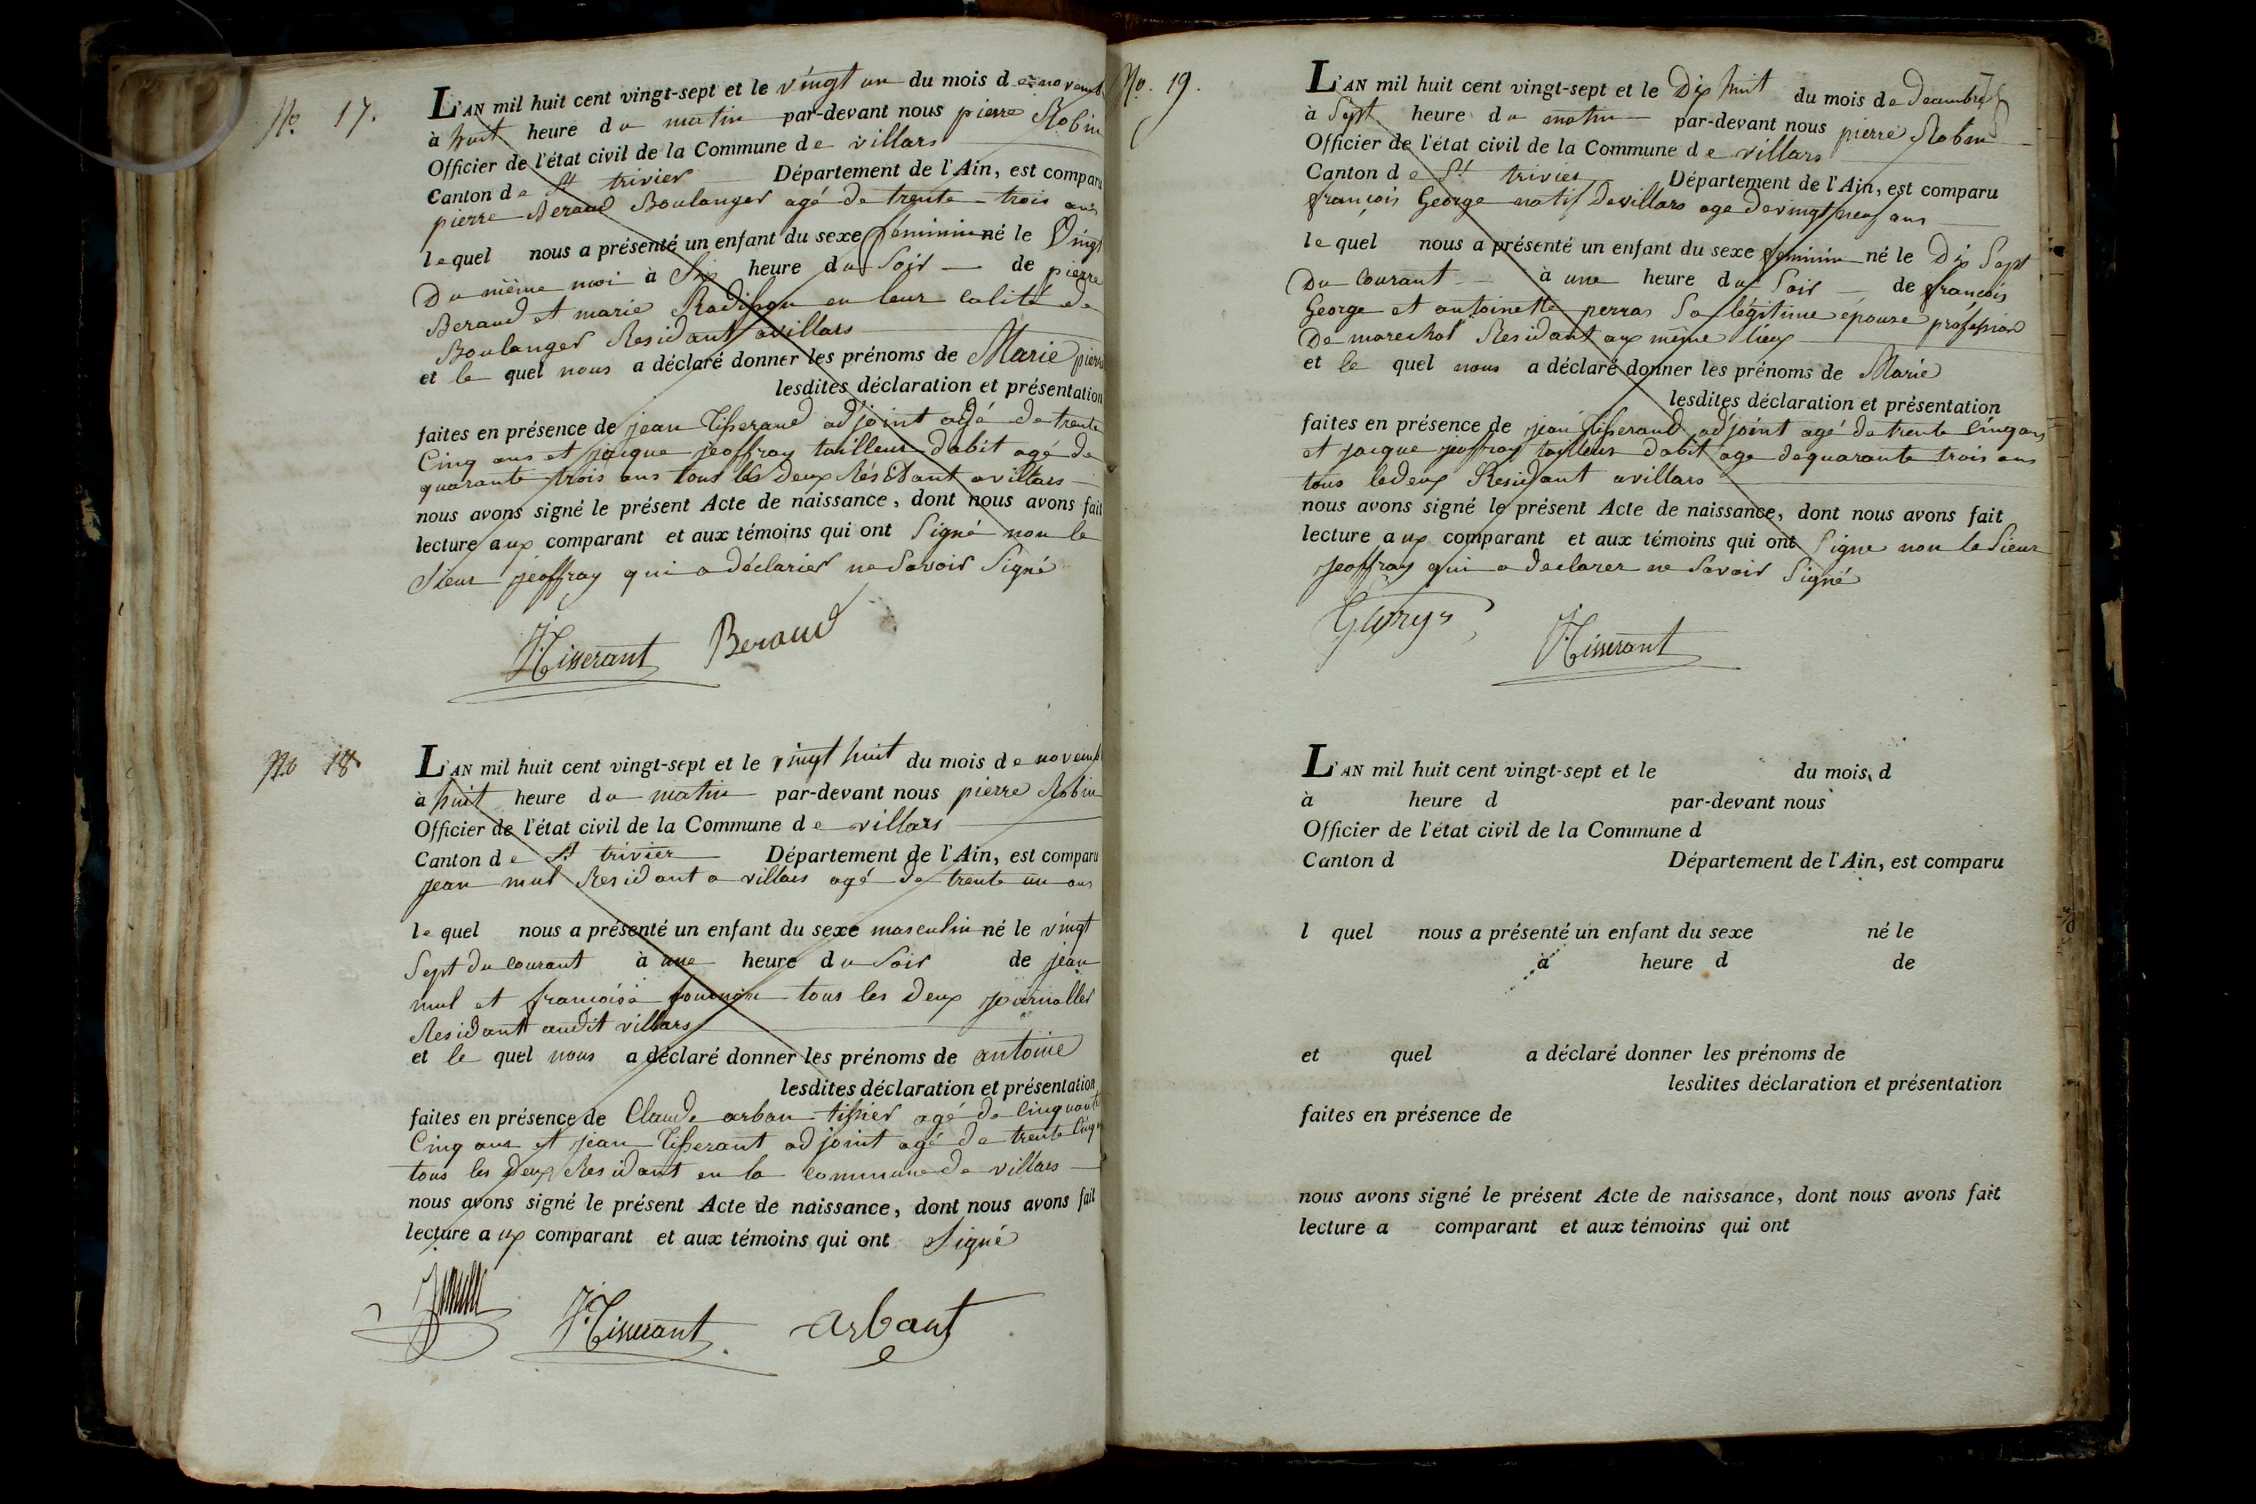 No. 17.
L'AN mil huit cent vingt-sept et le vingt un du mois de novemb
à huit heure du matin par-devant nous pierre Robin
Officier de l'état civil de la Commune de villars
Canton de St trivier Département de l'Ain, est comparu
pierre Beraud Boulanger agé de trente trois ans
lequel nous a présenté un enfant du sexe féminin né le Vingt
Du même moi à Six heure du Soir de pierre
Beraud et marie en leur calité de
Boulanger Residant avillars
et le quel nous a déclaré donner les prénoms de Marie pierre
lesdites déclaration et présentation
faites en présence de jean Tisserand adjoint agé de trente
Cinq ans et jacque jeoffray tailleur dabit agé de
quarante trois ans tous les Deux Résidant avillars
nous avons signé le présent Acte de naissance, dont nous avons fait
lecture aux comparant et aux témoins qui ont Signé non le
Sieur jeoffray qui a déclarier ne Savoir Signé
J. Tisserant Beraud
No 18.
L'AN mil huit cent vingt-sept et le vingt huit du mois de novemb
à huit heure du matin par-devant nous pierre Robin
Officier de l'état civil de la Commune de villars
Canton de St trivier Département de l'Ain, est comparu
jean mul Residant a villars agé de trente un ans
le quel nous a présenté un enfant du sexe masculin né le vingt
Sept du courant à une heure du Soir de jean
mul et françoise tous les Deux journallier
Residant audit villars
et le quel nous a déclaré donner les prénoms de antoine
lesdites déclaration et présentation
faites en présence de Claude arban tissier agé de Cinquante
Cinq ans et jean Tisserant adjoint agé de trente Cinq
tous les Deux Residant en la commune de villars
nous avons signé le présent Acte de naissance, dont nous avons fait
lecture aux comparant et aux témoins qui ont Signé
J. Tisserant arbant
No. 19.
L'AN mil huit cent vingt-sept et le Dix huit du mois de Decembre
à Sept heure du matin par-devant nous pierre Robin
Officier de l'état civil de la Commune de villars
Canton de St trivier Département de l'Ain, est comparu
françois George natif De villars age de vingt neuf ans
le quel nous a présenté un enfant du sexe feminin né le Dix Sept
Du Courant à une heure du Soir de françois
George et antoinette perras Sa légitime épouse profession
De marechal Residant aux même lieux
et le quel nous a déclaré donner les prénoms de Marie
lesdites déclaration et présentation
faites en présence de jean Tisserand adjoint agé de trente Cinq ans
et jacque jeoffray tailleur dabit age dequarante trois ans
tous ledeux Residant avillars
nous avons signé le présent Acte de naissance, dont nous avons fait
lecture aux comparant et aux témoins qui ont Signe non le Sieur
jeoffray qui a declarer ne Savoir Signé
J. Tisserant
L'AN mil huit cent vingt-sept et le du mois d
à heure d par-devant nous
Officier de l'état civil de la Commune d
Canton d Département de l'Ain, est comparu
l quel nous a présenté un enfant du sexe né le
à heure d de
et quel a déclaré donner les prénoms de
lesdites déclaration et présentation
faites en présence de
nous avons signé le présent Acte de naissance, dont nous avons fait
lecture a comparant et aux témoins qui ont